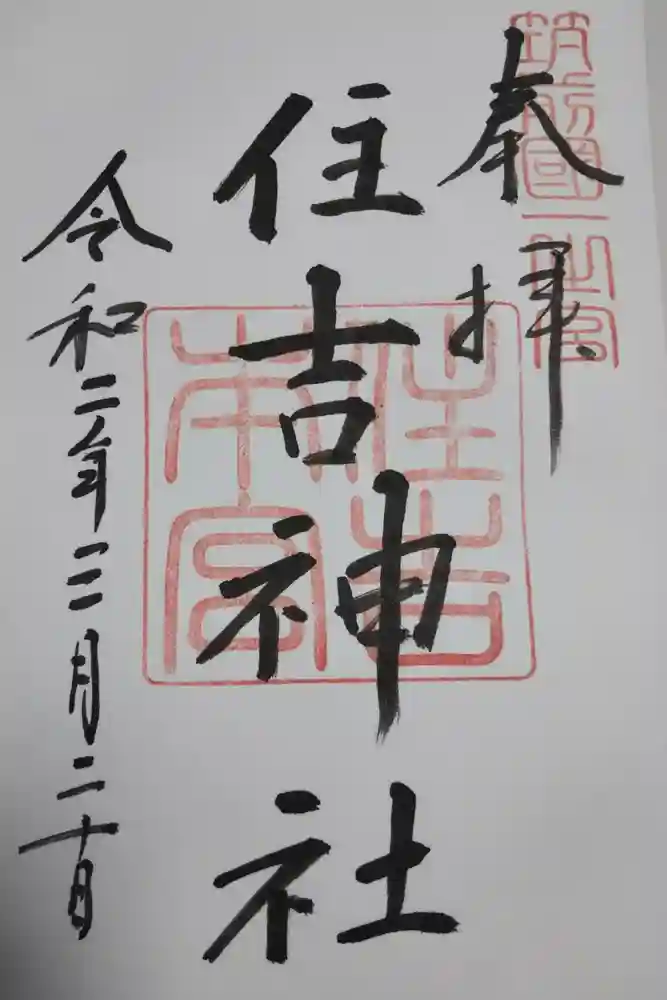 奉拝
筑前國一之宮
住吉神社
住吉本宮
令和二年三月二十日